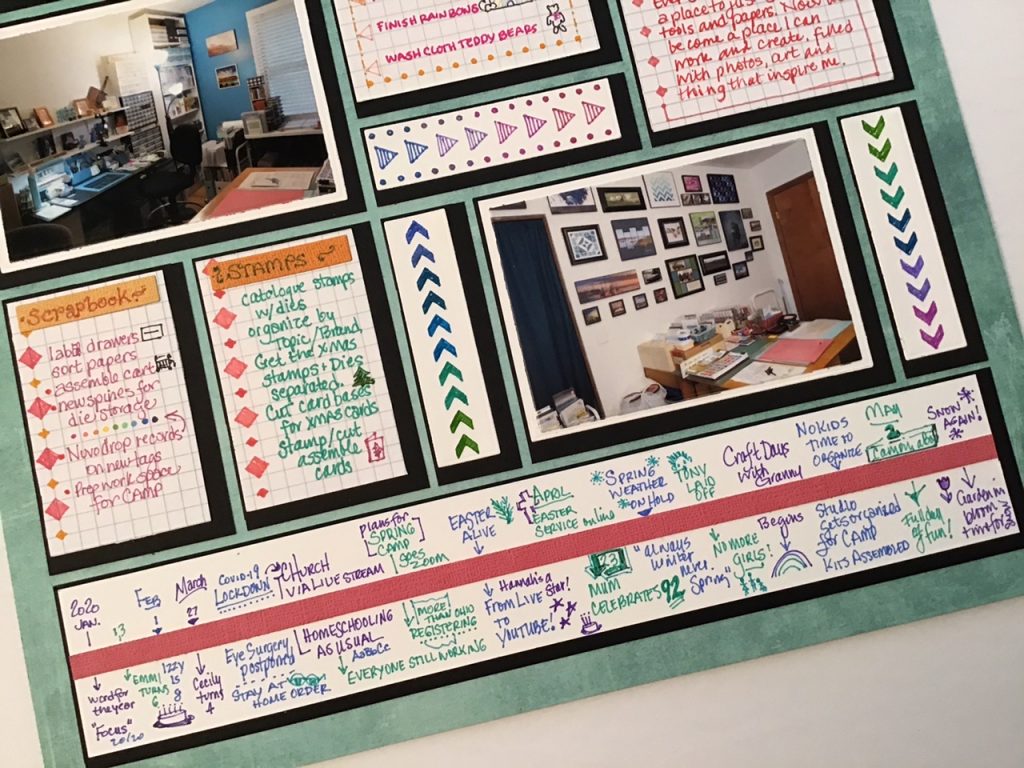 FINISH RAINBOWS
WASH CLOTH TEDDY BEARS
a place to
tools and papers. Now
become a place I can
work and create, filled
with photos, art and
thing that inspire me.
Scrapbook
label drawers
sort papers
assemble cart
new spines for
die storage
Nuvo drop records
on new tags
Prep work space
for CAMP
STAMPS
Catologue stamps
w/dies
organize by
Topic/Brand
Get the xmas
stamps + Dies
separated.
Cut card bases
for xmas cards
Stamp/cut
assemble
cards
2020
JAN.
1
13
FEB
1
March
27
COVID-19
LOCKDOWN
CHURCH
VIA LIVE STREAM
plans for
SPRING
CAMP
goes
Zoom
EASTER
ALIVE
APRIL
EASTER
SERVICE online
SPRING
WEATHER
ON HOLD
TONY
LAID
OFF
Craft Days
with
Granny
NO KIDS
TIME TO
ORGANIZE
MAY
2
SNOW
AGAIN!
word for
the year
"Focus"
20/20
EMMI
TURNS
6
Izzy
is
8
Cecily
turns
4
Eye Surgery
postponed
STAY AT
HOME ORDER
HOMESCHOOLING
AS USUAL
EVERYONE STILL WORKING
MORE
THAN OHIO
REGISTERING
Hannah is a
Star!
From LIVE
TO
YOUTUBE!
23
MUM
CELEBRATES 92
"always
winter
never
Spring"
NO MORE
GIRLS!
Begins
Studio
Gets organized
for Camp
KITS ASSEMBLED
Full day
of fun!
Garden in
bloom